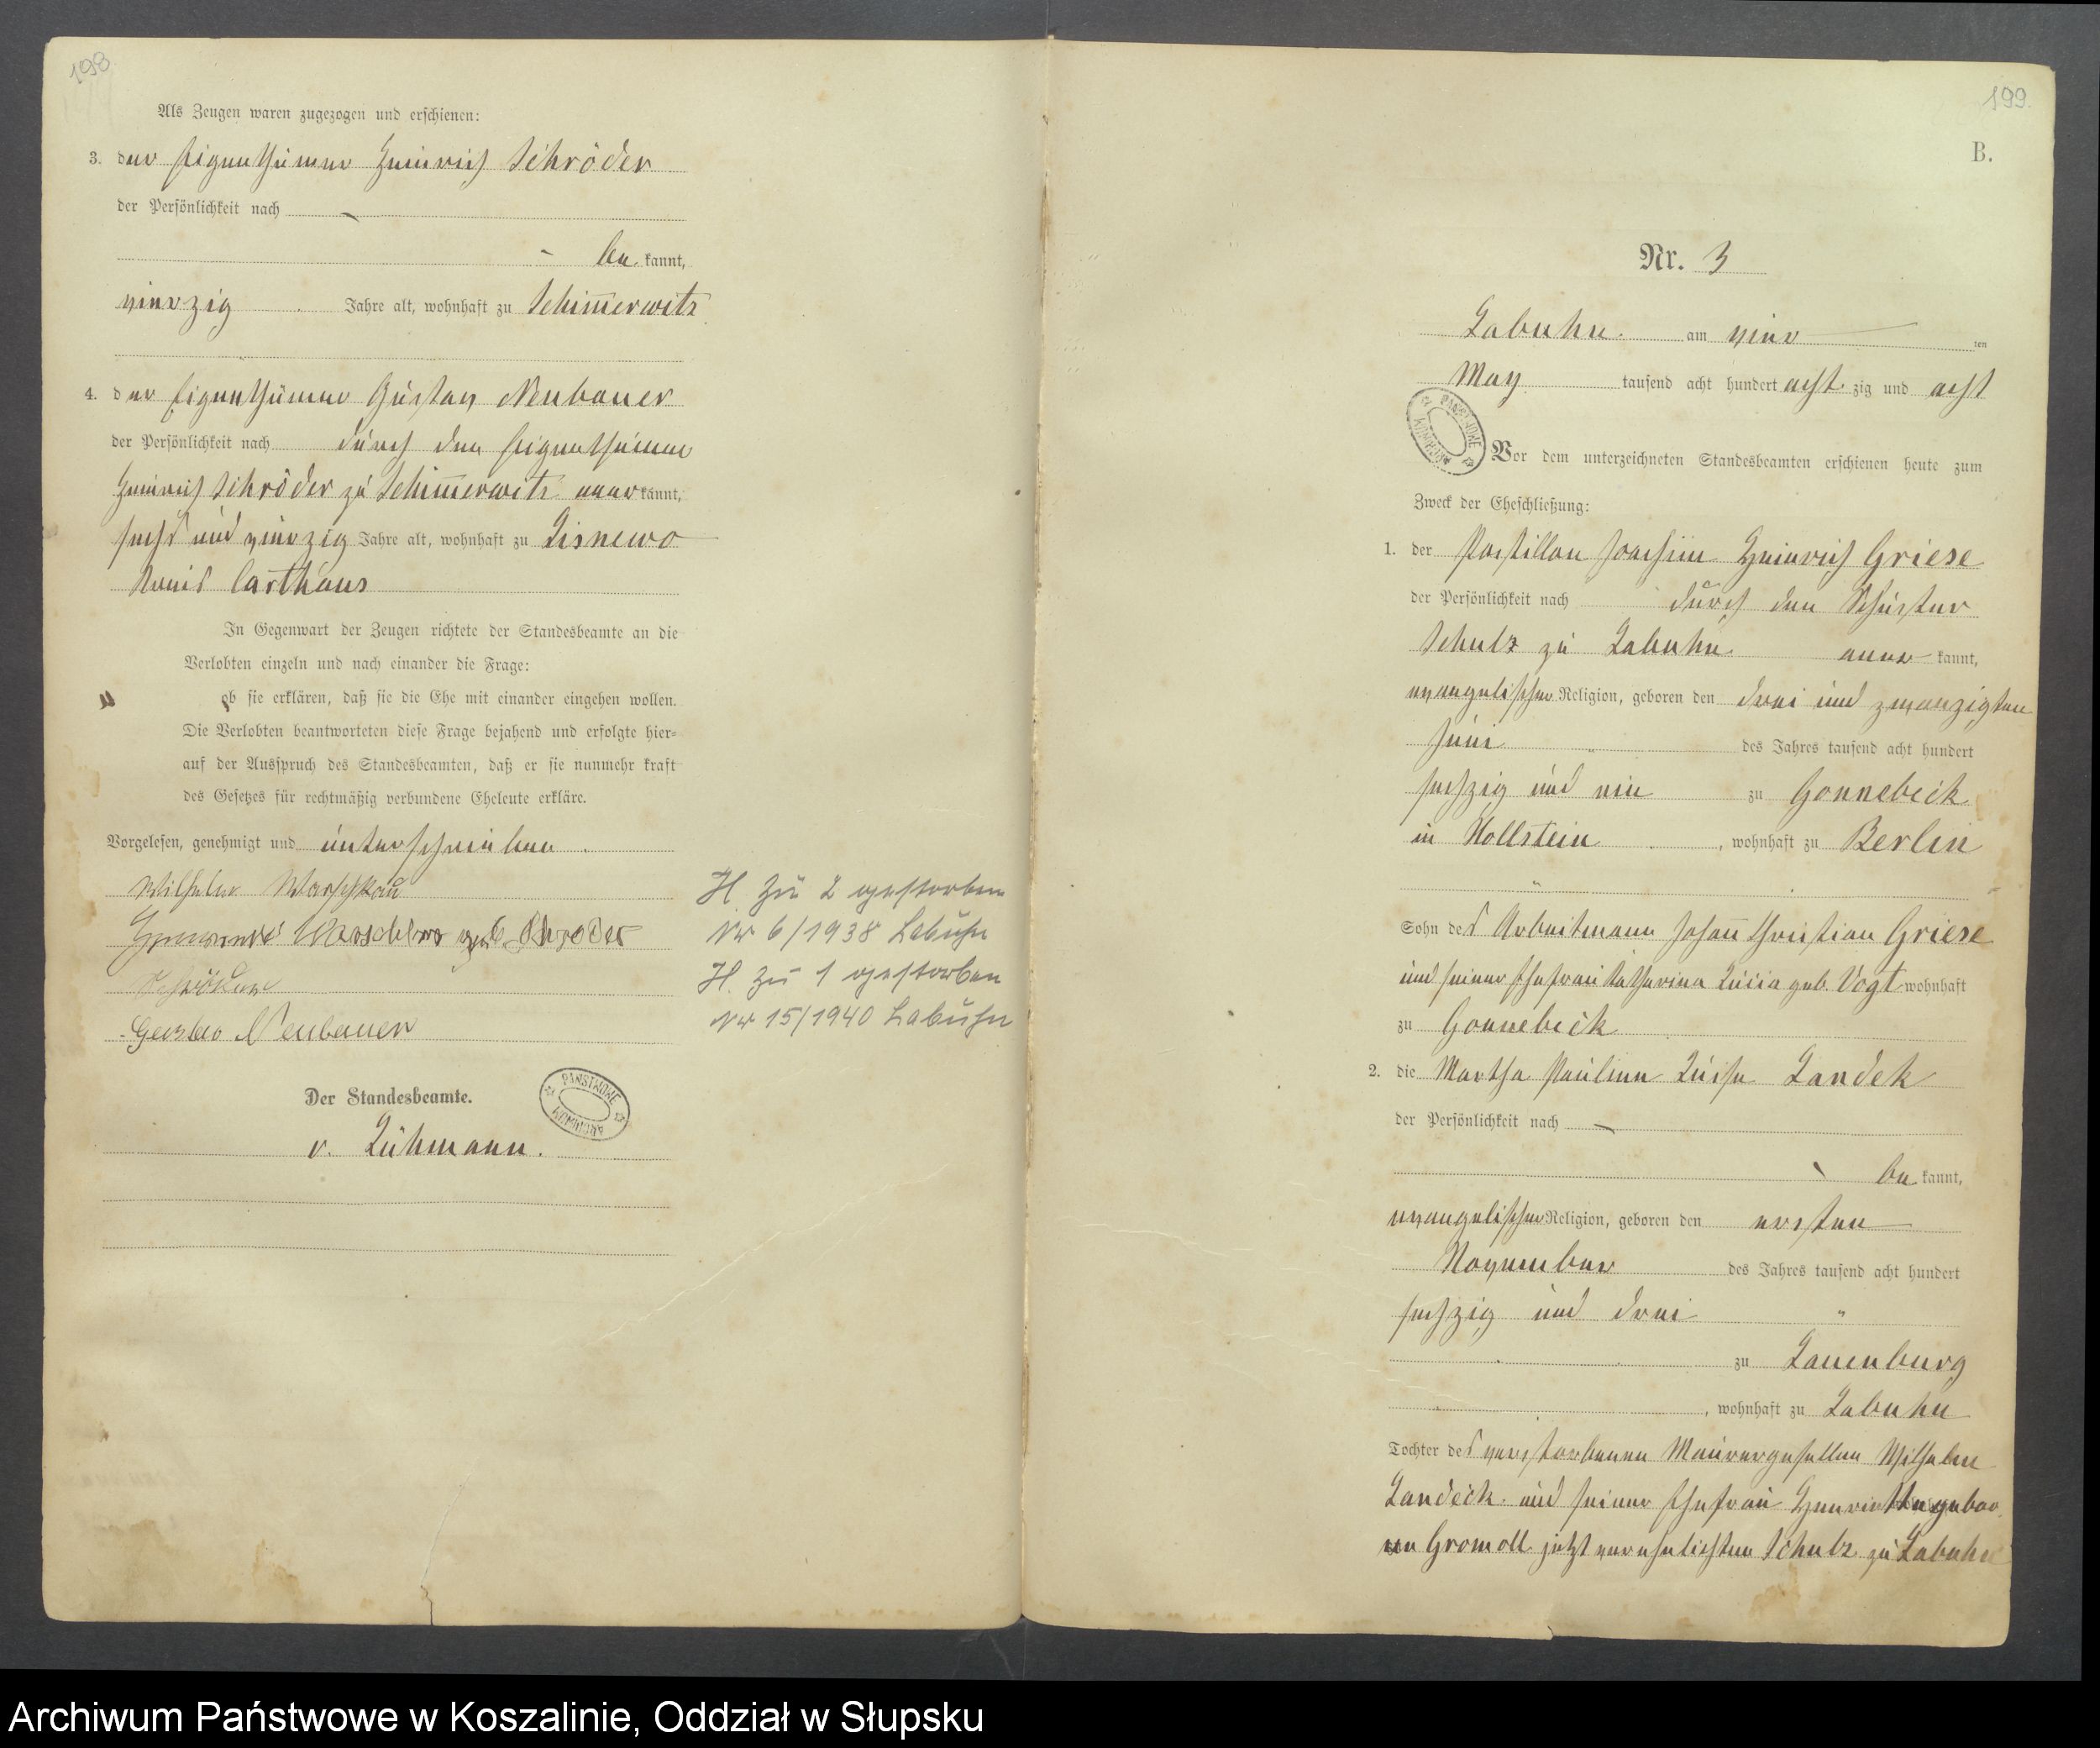 198
Als Zeugen waren zugezogen und erschienen:
3. der Eigenthümer Heinrich Schröder
der Persönlichkeit nach
be kannt,
vierzig Jahre alt, wohnhaft zu Schim̄erwitz
4. der Eigenthümer Gustav Neubauer
der Persönlichkeit nach durch den Eigenthümer
Heinrich Schröder zu Schim̄erwitz aner kannt,
sechs und vierzig Jahre alt, wohnhaft zu Lisnewo
Kreis Carthaus
In Gegenwart der Zeugen richtete der Standesbeamte an die
Verlobten einzeln und nach einander die Frage:
ob sie erklären, daß sie die Ehe mit einander eingehen wollen.
Die Verlobten beantworteten diese Frage bejahend und erfolgte hier=
auf der Ausspruch des Standesbeamten, daß er sie nunmehr kraft
des Gesetzes für rechtmäßig verbundene Eheleute erkläre.
Vorgelesen, genehmigt und unterschrieben
Wilhelm Marschkau
geb Schröder
Schröder
Neubauer
H. Zu 2 gestorben
Nr 6/1938 Labuhn
H. Zu 1 gestorben
Nr 15/1940 Labuhn
Der Standesbeamte.
PAŃSTWOWE ARCHIWUM
v. Lühmann.
199.
B.
Nr. 3
Labuhn am vier ten
May tausend acht hundert acht zig und acht
PAŃSTWOWE ARCHIWUM
Vor dem unterzeichneten Standesbeamten erschienen heute zum
Zweck der Eheschließung:
1. der Postillon Joachim Heinrich Griese
der Persönlichkeit nach durch den Schuster
Schulz zu Labuhn aner kannt,
evangelischer Religion, geboren den drei und zwanzigten
Juni des Jahres tausend acht hundert
sechzig und ein zu Gönnebeck
in Hollstein , wohnhaft zu Berlin
Sohn des Arbeitmann Johan̄ Christian Griese
und seiner Ehefrau Katharina Lucia geb. Vogt wohnhaft
zu Gönnebeck
2. die Martha Pauline Luise Landek
der Persönlichkeit nach
be kannt,
evangelischer Religion, geboren den ersten
November des Jahres tausend acht hundert
sechzig und drei
zu Lauenburg
, wohnhaft zu Labuhn
Tochter des verstorbenen Maurergesellen Wilhelm
Landeck und seiner Ehefrau Henriette gebor
ne Gromoll jetzt verehelichten Schulz zu Labuhn
Archiwum Państwowe w Koszalinie, Oddział w Słupsku